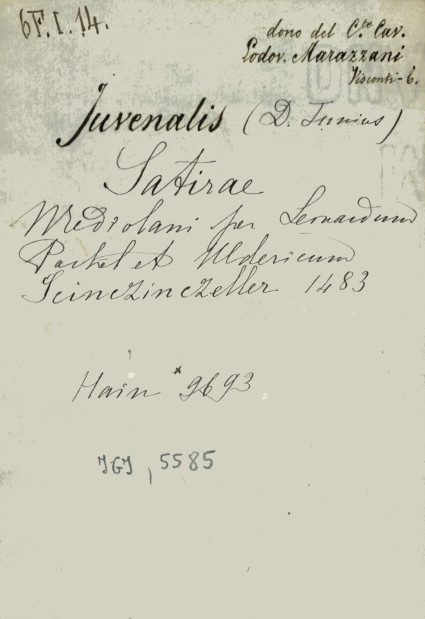 6F.I.14.
dono del C.te Cav.
Lodov. Marazzani
Visconti-
Juvenalis (D. Junius)
Satirae
Mediolani per Leonardum
Pachel et Uldericum
Scinczinczeller 1483
Hain * 9693
IGI, 5585